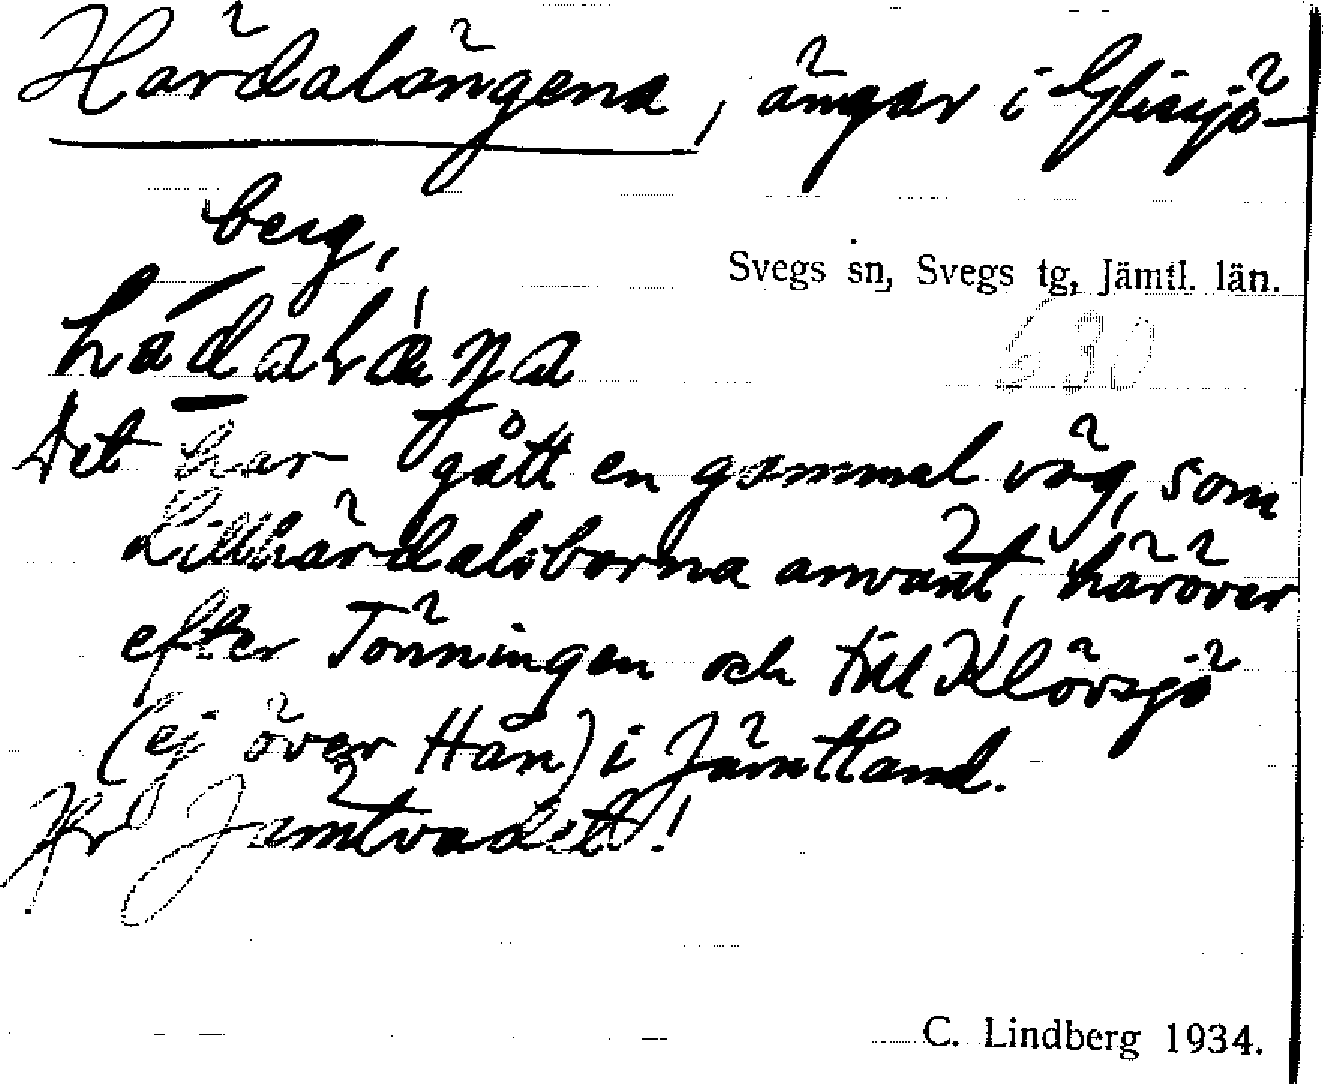 Härdalängena, ängar i Glissjö-
berg,
Svegs sn, Svegs tg, Jämtl. län.
630
Det har gått en gammal väg, som
Lillhärdalsborna använt, häröver
efter Tönningen och till Klövsjö
(ej över Hån) i Jämtland.
Jfr Jämtvadet!
C. Lindberg 1934.